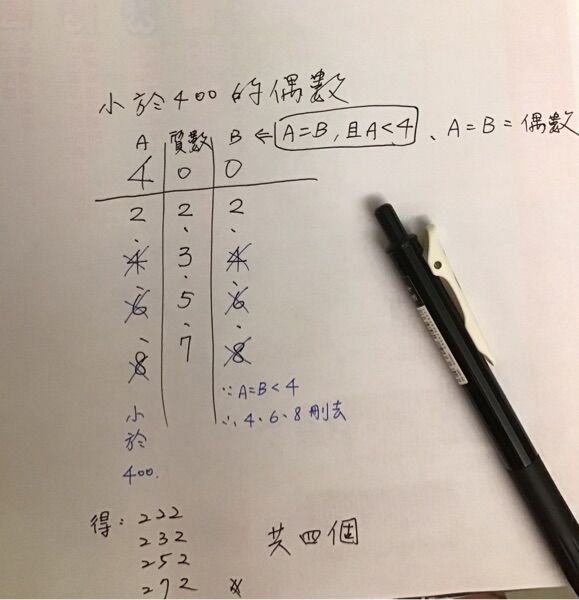 小於400的偶數
A 質數 B ← A=B,且A<4 、A=B=偶數
4 0 0
2 2 2
4 3 4
6 5 6
8 7 8
小於400.
∵A=B<4
∴4、6、8刪去
得:222
232
252
272
共四個